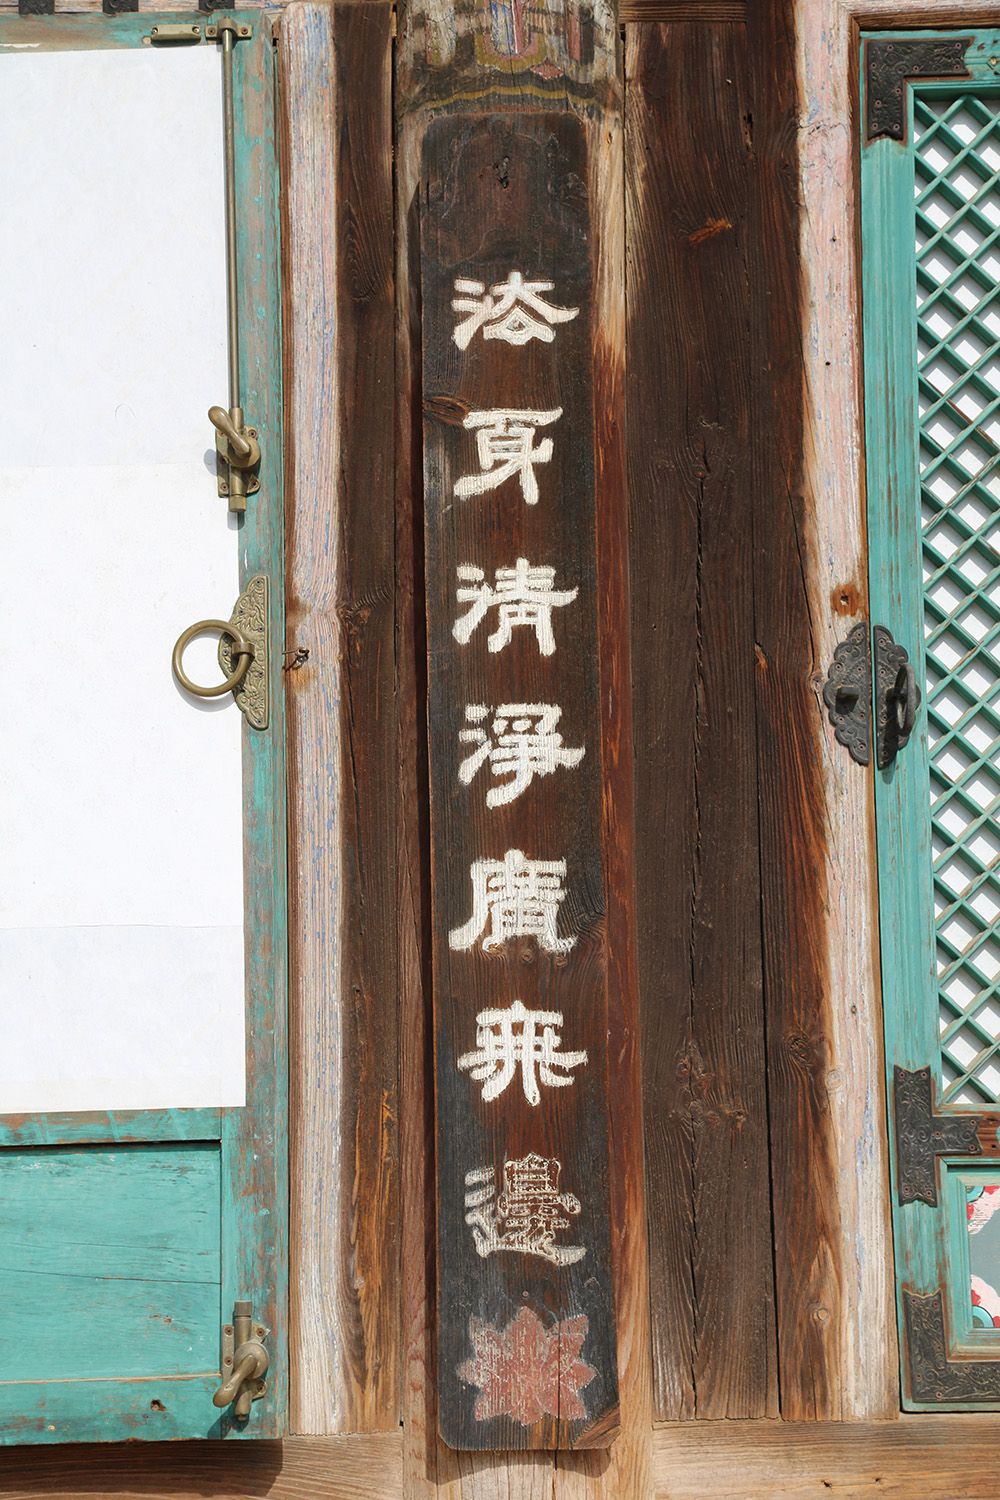 法身清淨廣無邊